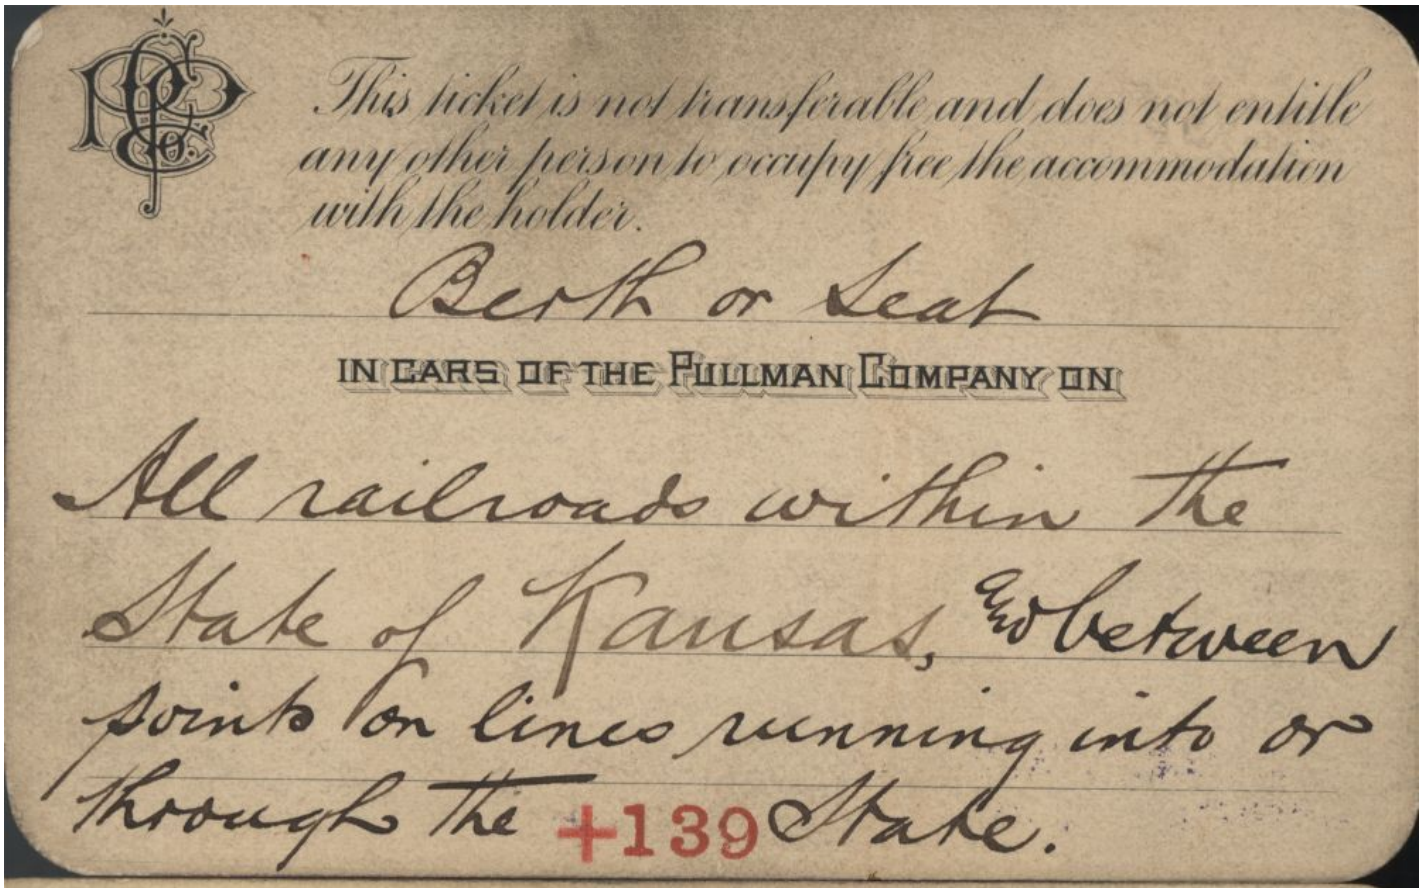 PPCCo.
This ticket is not transferable and does not entitle
any other person to occupy free the accommodation
with the holder.
Berth or Seat
IN CARS OF THE PULLMAN COMPANY ON
All railroads within the
State of Kansas, and between
points on lines running into or
through the +139 State.